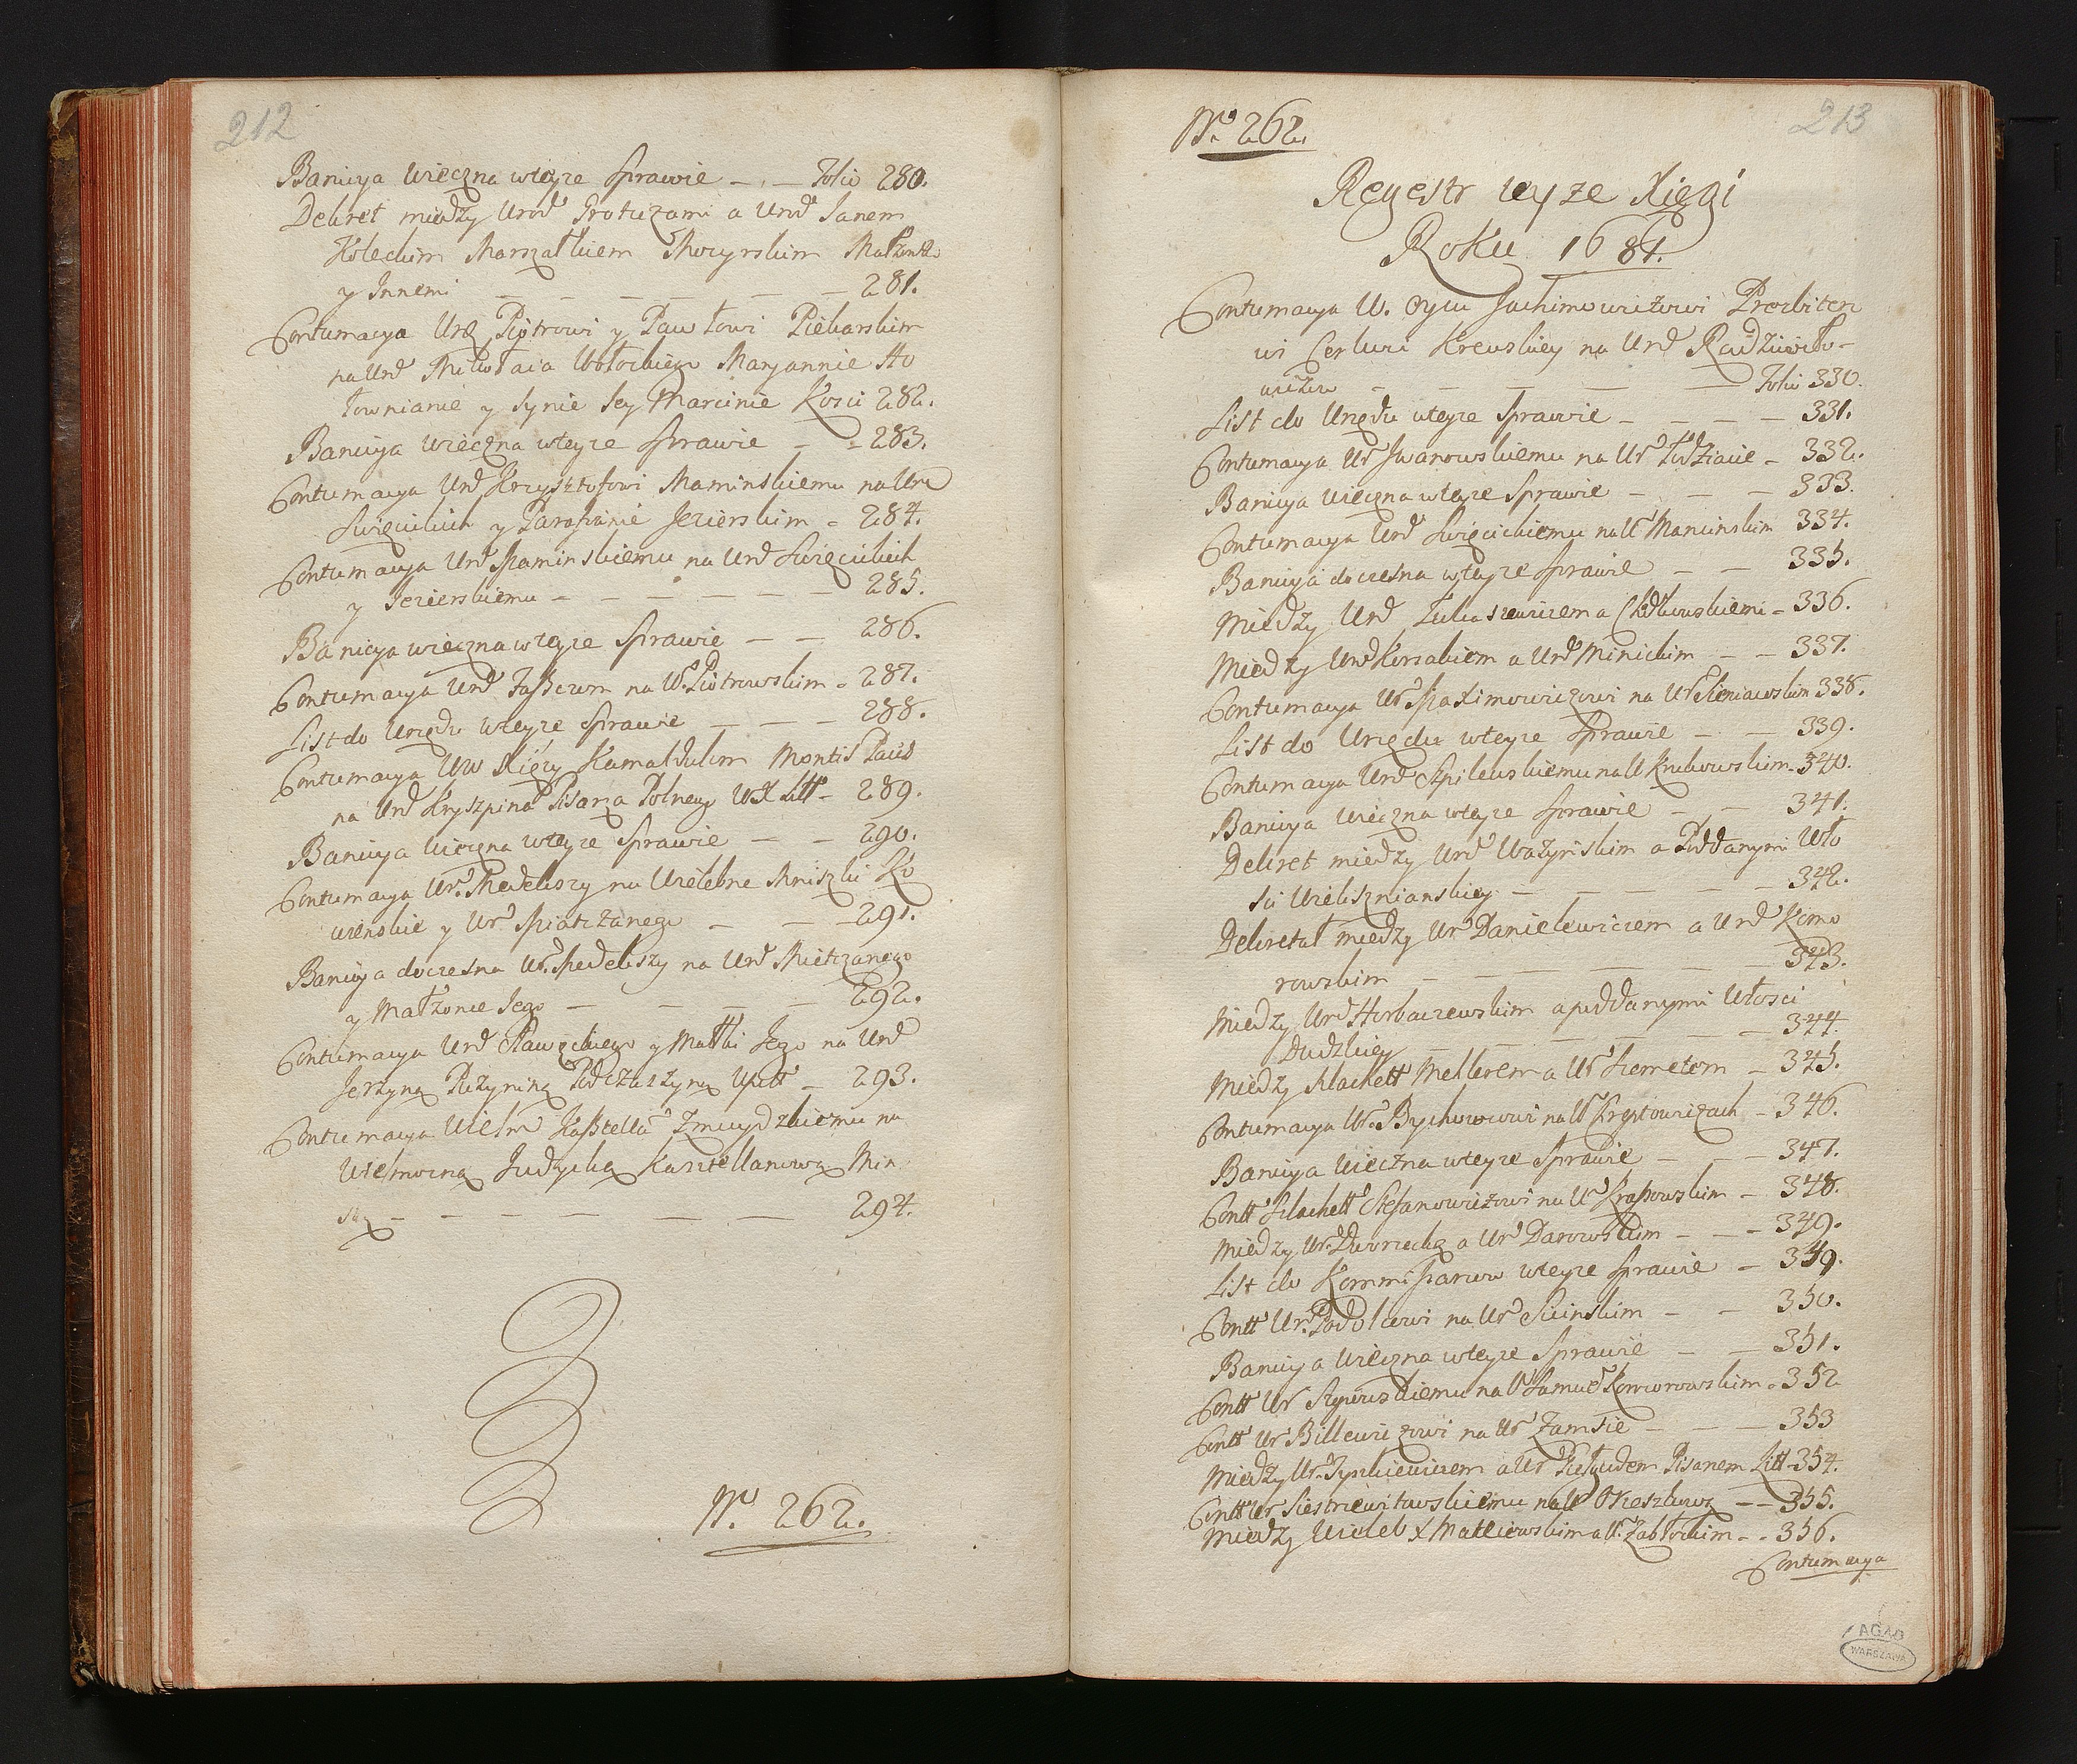 212
Banicya wieczna wteyze Sprawie — — Folio 280.
Dekret między Urod Protwzami a Urod Janem
Koleckim Marszałkiem Mozyrskim Małżonką
y Innemi — — — — — — 281.
Contumacya Urd Piotrowi y Pawłowi Piekarskim
na Urd Mikołaia Wołockiego Maryannie Ho
łownianie y Synie Jey Marcinie Kosci 282.
Banicya wieczna wteyze Sprawie — - 283.
Contumacya Urd Krzysztofowi Maminskiemu na Urd
Swięcickich y Parafianie Jezierskim - 284.
Contumacya Urd Maminskiemu na Urd Swięcickich
y Jezierskiemu — — — — — — 285.
Banicya wieczna wteyze Sprawie — — 286.
Contumacya Urd na W. Piotrowskim - 287.
List do Urzędu wteyze Sprawie — — — 288.
Contumacya UW Xięży Kamaldulom Montis Pacis
na Urd Kryszpina Pisarza Polnego WX Litt - 289.
Banicya wieczna wteyze Sprawie — — 290.
Contumacya Ur. Medekszy na Wielebne Mniszki Ko
wienskie y Ur. Miatczanego — — 291.
Banicya doczesna Ur. Medekszy na Urd Mietczanego
y Małżonce Jego — — — — — 292.
Contumacya Urd Sławęckiego y Matki Jego na Urd
Jerzyną Puzyniną Podczaszyną Upitt — 293.
Contumacya Wielm Kasztella Zmuydzkiemu na
Wielmozną Judycką Kasztellanową Min
ską — — — — — — 294.
N. 262.
213
No 262.
Regestr teyze Xięgi
Roku 1684.
Contumacya W. Oycu Jachimowiczowi Prezbitero
wi Cerkwi Krewskiey na Urd Radziwiłło-
wiczu — — — — — Folio 330.
List do Urzędu wteyze Sprawie — — — — 331.
Contumacya Ur Iwanowskiemu na Ur Łodziacie - 332.
Banicya wieczna wteyze Sprawie — — — 333.
Contumacya Urd Swięcickiemu na U Maminskim 334.
Banicya doczesna wteyze Sprawie — — 335.
Między Urd Łukaszewiczem a Chodkowskiemi - 336.
Między Urd Korsakiem a Urd Minickim — — 337.
Contumacya Ur Maximowiczowi na Ur Sieniawskim 338.
List do Urzędu wteyze Sprawie — — 339.
Contumacya Urd Szpilewskiemu na U Krukowskim - 340.
Banicya wieczna wteyze Sprawie — — 341.
Dekret między Urd Wazynskim a Poddanymi Wło
sci Wieliszniańskiey — — — — — 342.
Dekretał między Ur Danielewiczem a Urd Komo
rowskim — — — — — — 343.
Między Urd Horbaczewskim a poddanymi Włosci
Dudzkiey — — — — — — 344.
Między Slachett Mellerem a Ur Siemetem — 345.
Contumacya Ur. Bychowcowi na U Kreptowiczach - 346.
Banicya wieczna wteyze Sprawie — — — 347.
Contt Slachett Stefanowiczowi na U Krassowskim — 348.
Między Ur. Dworzecką a Ur Darowskim — — - 349.
List do Kommissarzow wteyze Sprawie — 349.
Contt Ur. Podolcowi na Ur Sicinskim — — 350.
Banicya wieczna wteyze Sprawie — — 351.
Contt Ur Szyrwskiemu na U Samuel Komorowskim - 352
Contt Ur Billewiczowi na Ur Zamsie — — — 353
Między Ur. Tyszkiewiczem a Ur Giełgudem Pisarzem Litt - 354.
Contt Ur Siestrzewitowskiemu na U Okieszkową — — 355.
Między Wieleb X Matlewskim a U. Zabłockim - - 356.
Contumacya
AGAD
WARSZAWA